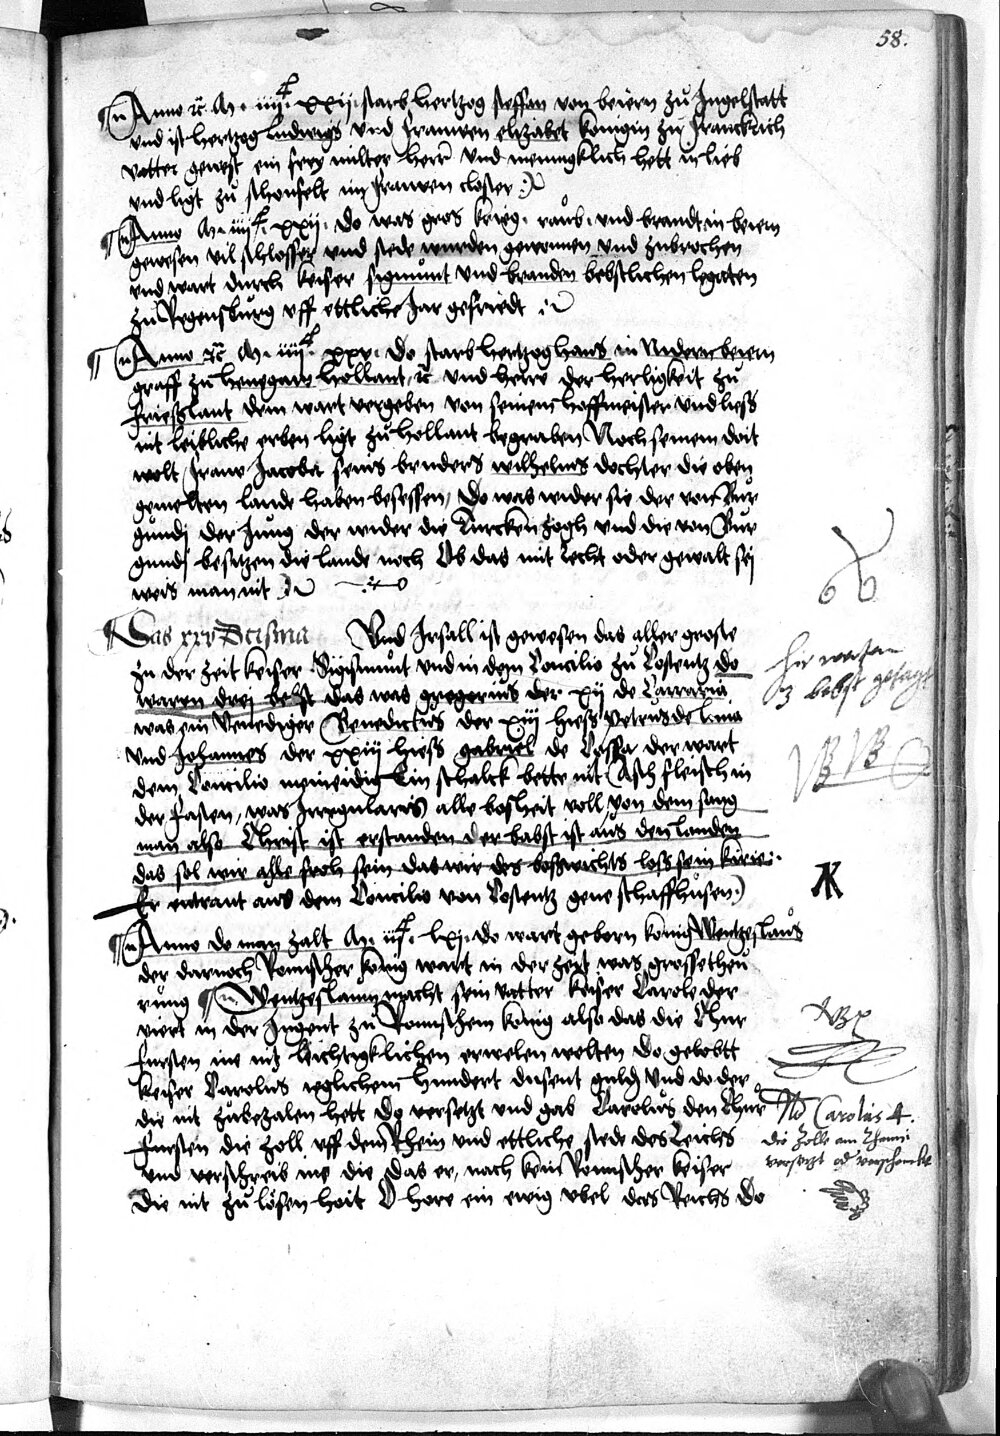 58.
Anno etc. M. iiijc. xxij. starb hertzog steffan von beiern zu Ingelstatt
und ist hertzog Ludwigs und frauwen elizabet konigin zu franckrich
vatter gewest ein frey milter herr und meniugklich hett in lieb
und ligt zu schonfelt im frauwen closter
Anno M. iiijc. xxij. do was gros krieg. raub. und brandt in beiern
gewesen vil schlosser und stede wurden gewonnen und zubrochen
und wart durch keiser sigmunt und branden bebstlichen legaten
zu Regensburg uff ettliche Jar gefriedt
Anno etc. M. iiijc. xxv. do starb hertzog hans in Nidern beiern
graff zu henegaw hollant, etc. und herre der herligkeit zu
frieszlant dem wart vergeben von seinem hoffmeister und liesz
nit leibliche erben ligt zu hollant begraben Noch seinem doit
wolt frauw Jacoba seins bruders wilhelms dochter die oben
gemelten lande haben besessen, do was wider sie der von Bur
gundj der Jung der wider die Turcken zogh und die von Bur
gundj besitzen die lande noch Ob das mit recht oder gewalt sej
weis man nit
Das xxv Scisma Und Irsall ist gewesen das aller groste
zu der zeit keiser Sigismunt und in dem Concilio zu Costentz do
waren drej bebst das was gregorius der xij de Carraria
was ein Venediger Benedictus der xiij hiess petrus de luna
und Johannes der xxiij hiess gabriel de Cossa der wart
dem Concilio meineidig Ein schalck bette nit Asch fleisch in
der fasten, was Irregularis alle bosheit voll, von dem sang
man also Christ ist erstanden der babst ist aus den landen
das sol wir alle froh sein das wir des boszwichts losz sein kirie:.
Er entrant aus dem Concilio von Costentz gene schaffhusen
Anno do man zalt M. iijc. lxj. do wart geborn konig Wentzeslaus
der darnoch Romischer konig wart in der zeit was grosse theu
rung Wentzeslaum macht sein vatter keiser Carole der
viert in der Jugent zu Romischem konig also das die Chur
fursten ine nit leichtigklichen erwelen wolten do gelobtt
keiser Carolus ieglichem hundert dusent guld und do der
die nit zubezalen hett do versetzt und gab Carolus den Chur
fursten die zoll uff dem Rhein und ettliche stede des Reichs
und verschreib ine die das er, nach kein Romischer keiser
die nit zu lösen hait O hore ein ewig ubel des Reichs do
hir waren
3 bebst gesagt
NB NB
NB
No Carolus 4.
die Zolle am Rhein
versetzt od verschenckt